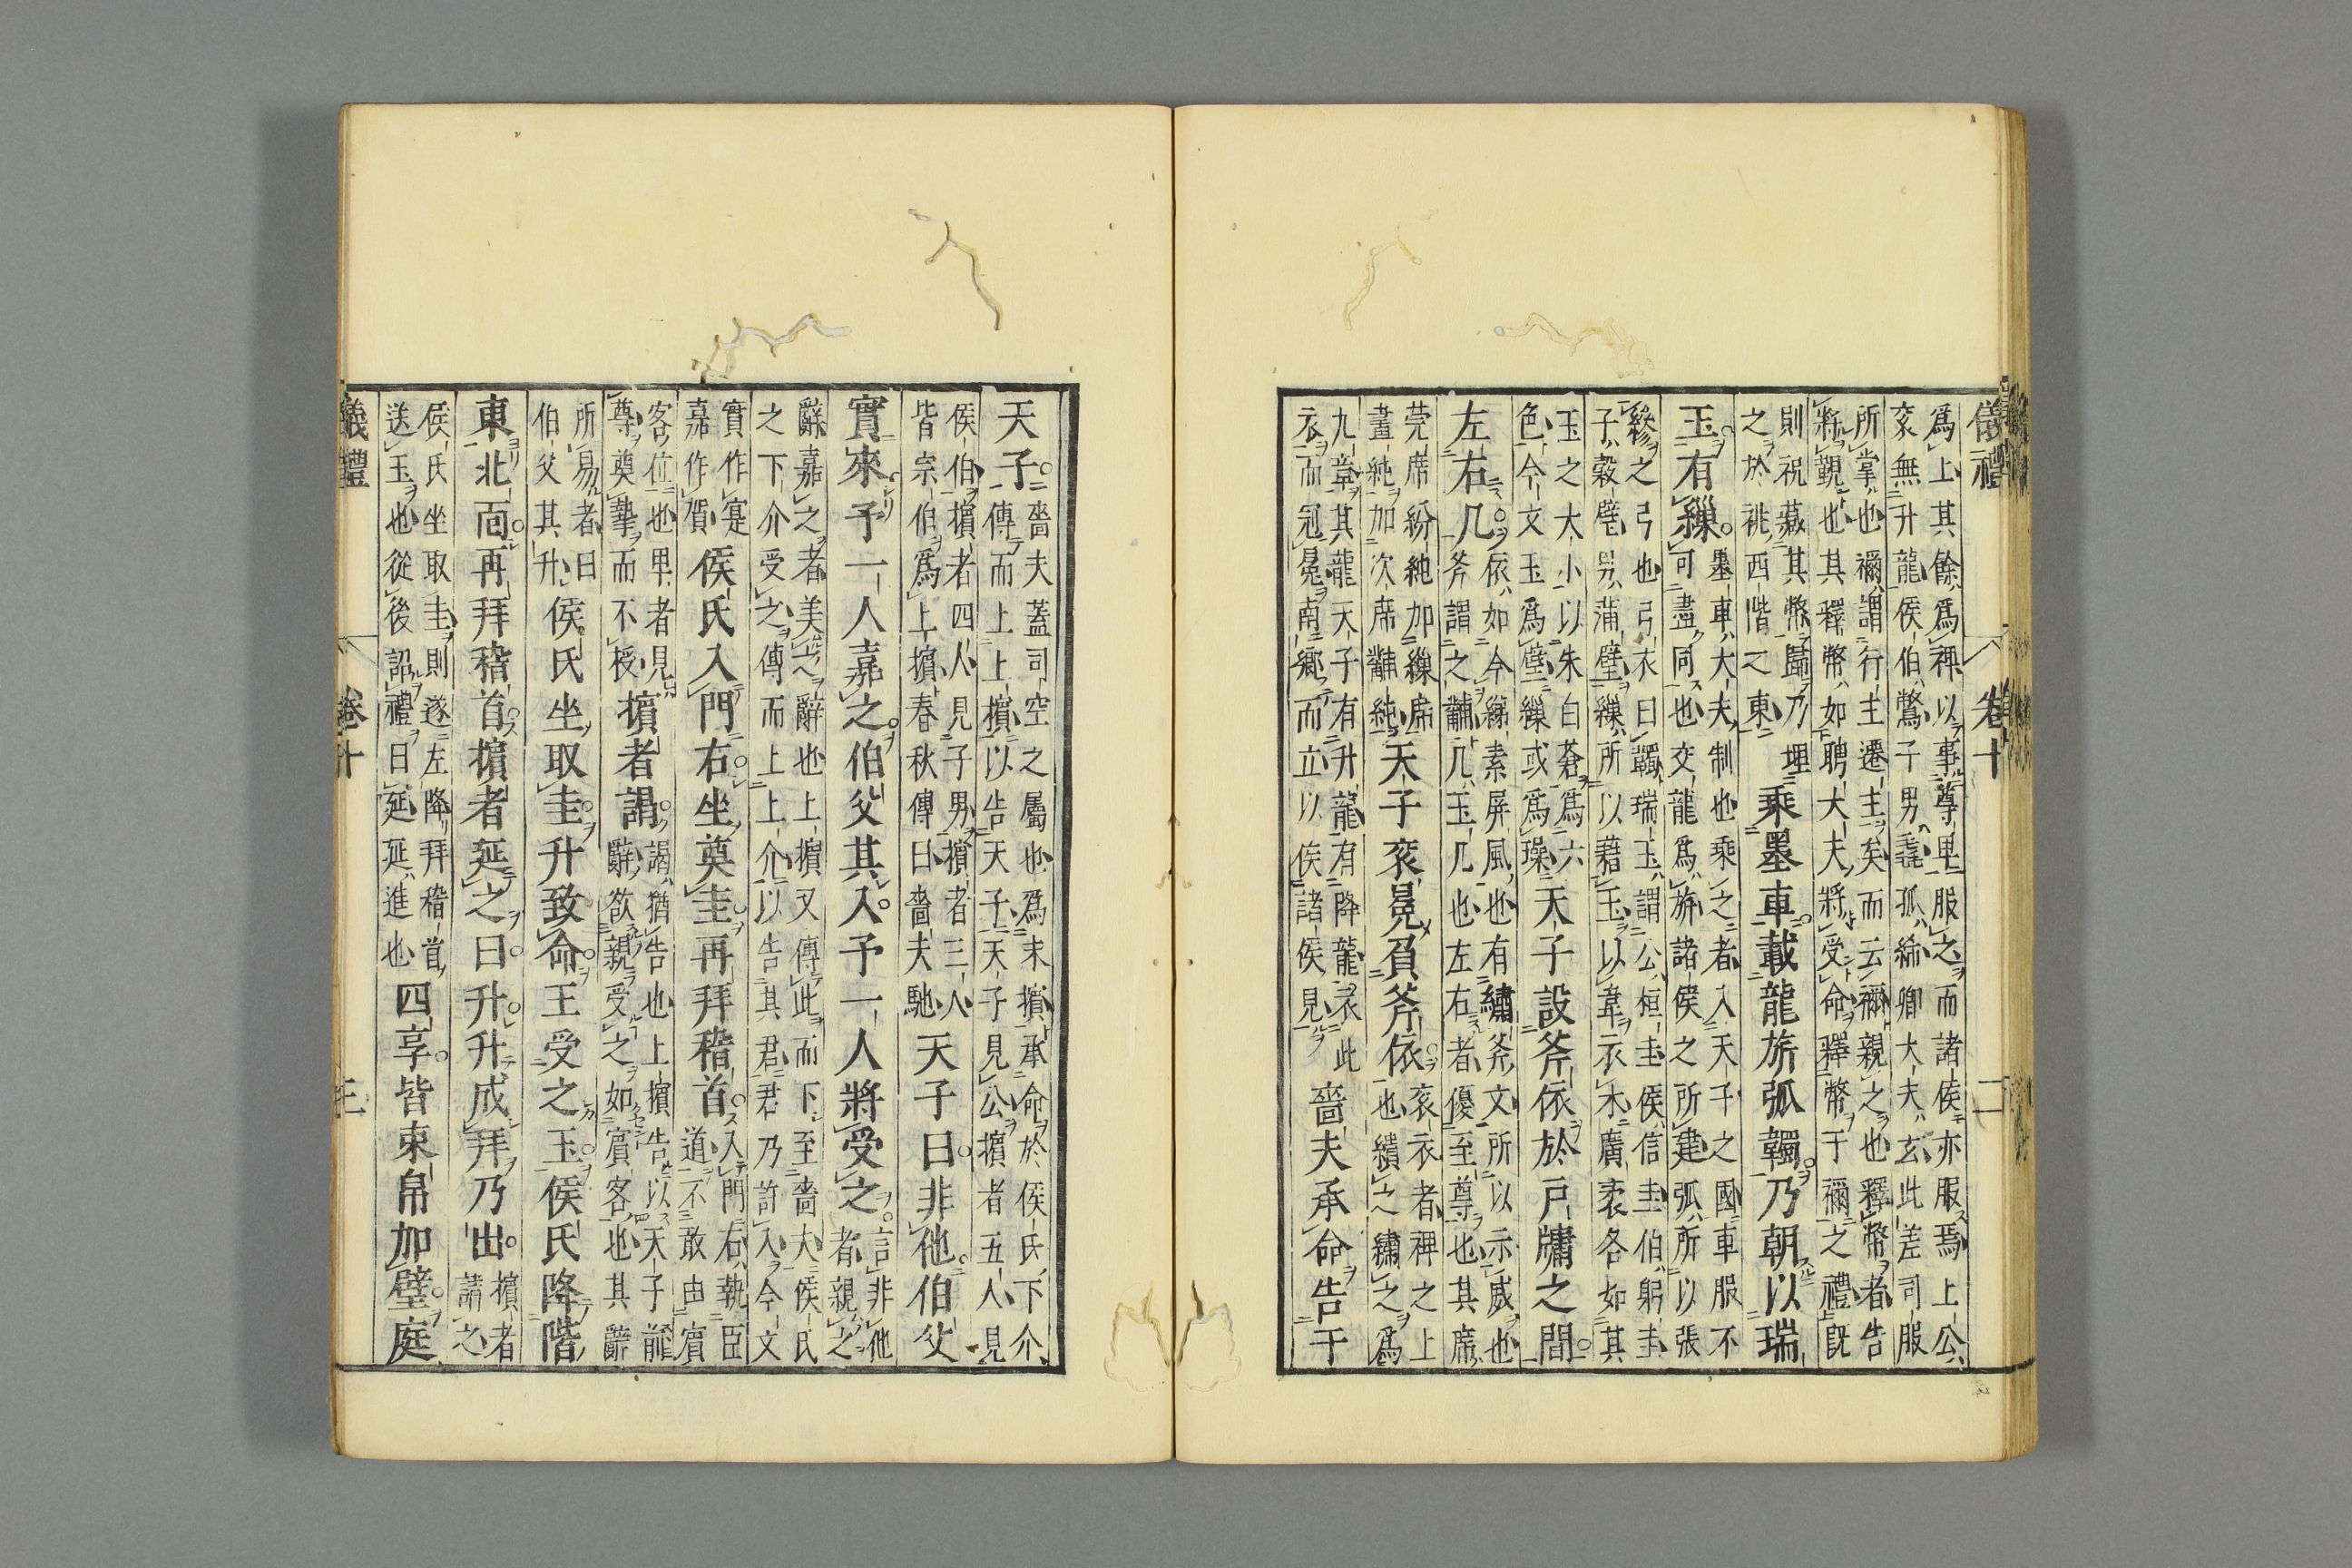 儀禮　卷十　二
爲上其餘爲裨以事尊卑服之而諸侯亦服焉上公
袞無升龍侯伯鷩子男毳孤絺卿大夫玄此差司服
所掌也禰謂行主遷主矣而云禰親之也釋幣者告
將覲也其釋幣如聘大夫將受命釋幣于禰之禮旣
則祝藏其幣歸乃埋
之於祧西階之東
乘墨車載龍旂弧韣乃朝以瑞
玉有繅
墨車大夫制也乘之者入天子之國車服不
可盡同也交龍爲旂諸侯之所建弧所以張
縿之弓也弓衣曰韣瑞玉謂公桓圭侯信圭伯躬圭
子穀璧男蒲璧繅所以藉玉以韋衣木廣袤各如其
玉之大小以朱白蒼爲六
色今文玉爲璧繅或爲璪
天子設斧依於戶牖之間
左右几
依如今綈素屏風也有繡斧文所以示威也
斧謂之黼几玉几也左右者優至尊也其席
莞席紛純加繅席
畫純加次席黼純
天子袞冕負斧依
袞衣者裨之上
也繢之繡之爲
九章其龍天子有升龍有降龍衣此
衣而冠冕南鄉而立以俟諸侯見
嗇夫承命告于
天子
嗇夫蓋司空之屬也爲末擯承命於侯氏下介
傳而上上擯以告天子天子見公擯者五人見
侯伯擯者四人見子男擯者三人
皆宗伯爲上擯春秋傳曰嗇夫馳
天子曰非他伯父
實來予一人嘉之伯父其入予一人將受之
言非他
者親之
辭嘉之者美之辭也上擯又傳此而下至嗇夫侯氏
之下介受之傳而上上介以告其君君乃許入今文
實作寔
嘉作賀
侯氏入門右坐奠圭再拜稽首
入門右執臣
道不敢由賓
客位也卑者見
尊奠摯而不授
擯者謁
謁猶告也上擯告以天子前
辭欲親受之如賓客也其辭
所易者曰
伯父其升
侯氏坐取圭升致命王受之玉侯氏降階
東北面再拜稽首擯者延之曰升升成拜乃出
擯者
請之
侯氏坐取圭則遂左降拜稽首
送玉也從後詔禮曰延延進也
四享皆束帛加璧庭
儀禮　卷十　三